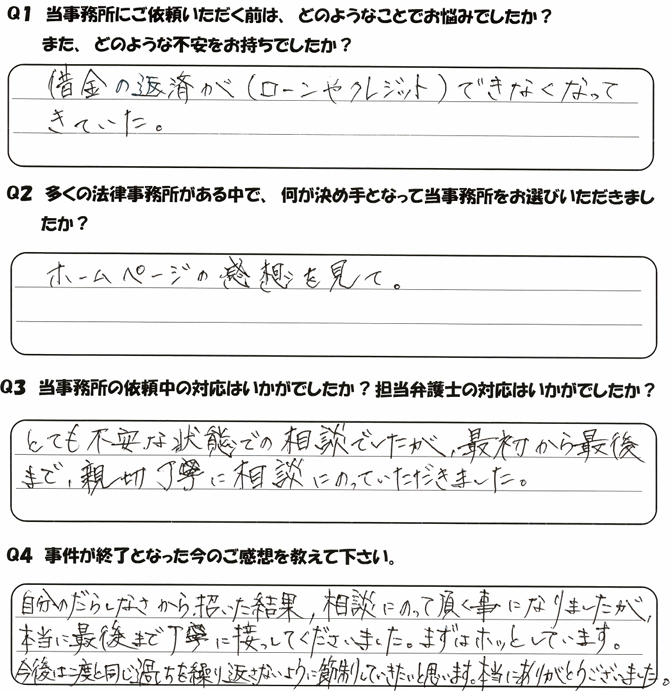 Q1 当事務所にご依頼いただく前は、どのようなことでお悩みでしたか？
また、どのような不安をお持ちでしたか？
借金の返済が(ローンやクレジット)できなくなって
きていた。
Q2 多くの法律事務所がある中で、何が決め手となって当事務所をお選びいただきまし
たか？
ホームページの感想を見て。
Q3 当事務所の依頼中の対応はいかがでしたか？担当弁護士の対応はいかがでしたか？
とても不安な状態での相談でしたが、最初から最後
まで、親切丁寧に相談にのっていただきました。
Q4 事件が終了となった今のご感想を教えて下さい。
自分のだらしなさから招いた結果、相談にのって頂く事になりましたが、
本当に最後まで丁寧に接っしてくださいました。まずはホッとしています。
今後は二度と同じ過ちを繰り返さないように節制していきたいと思います。本当にありがとうございました。